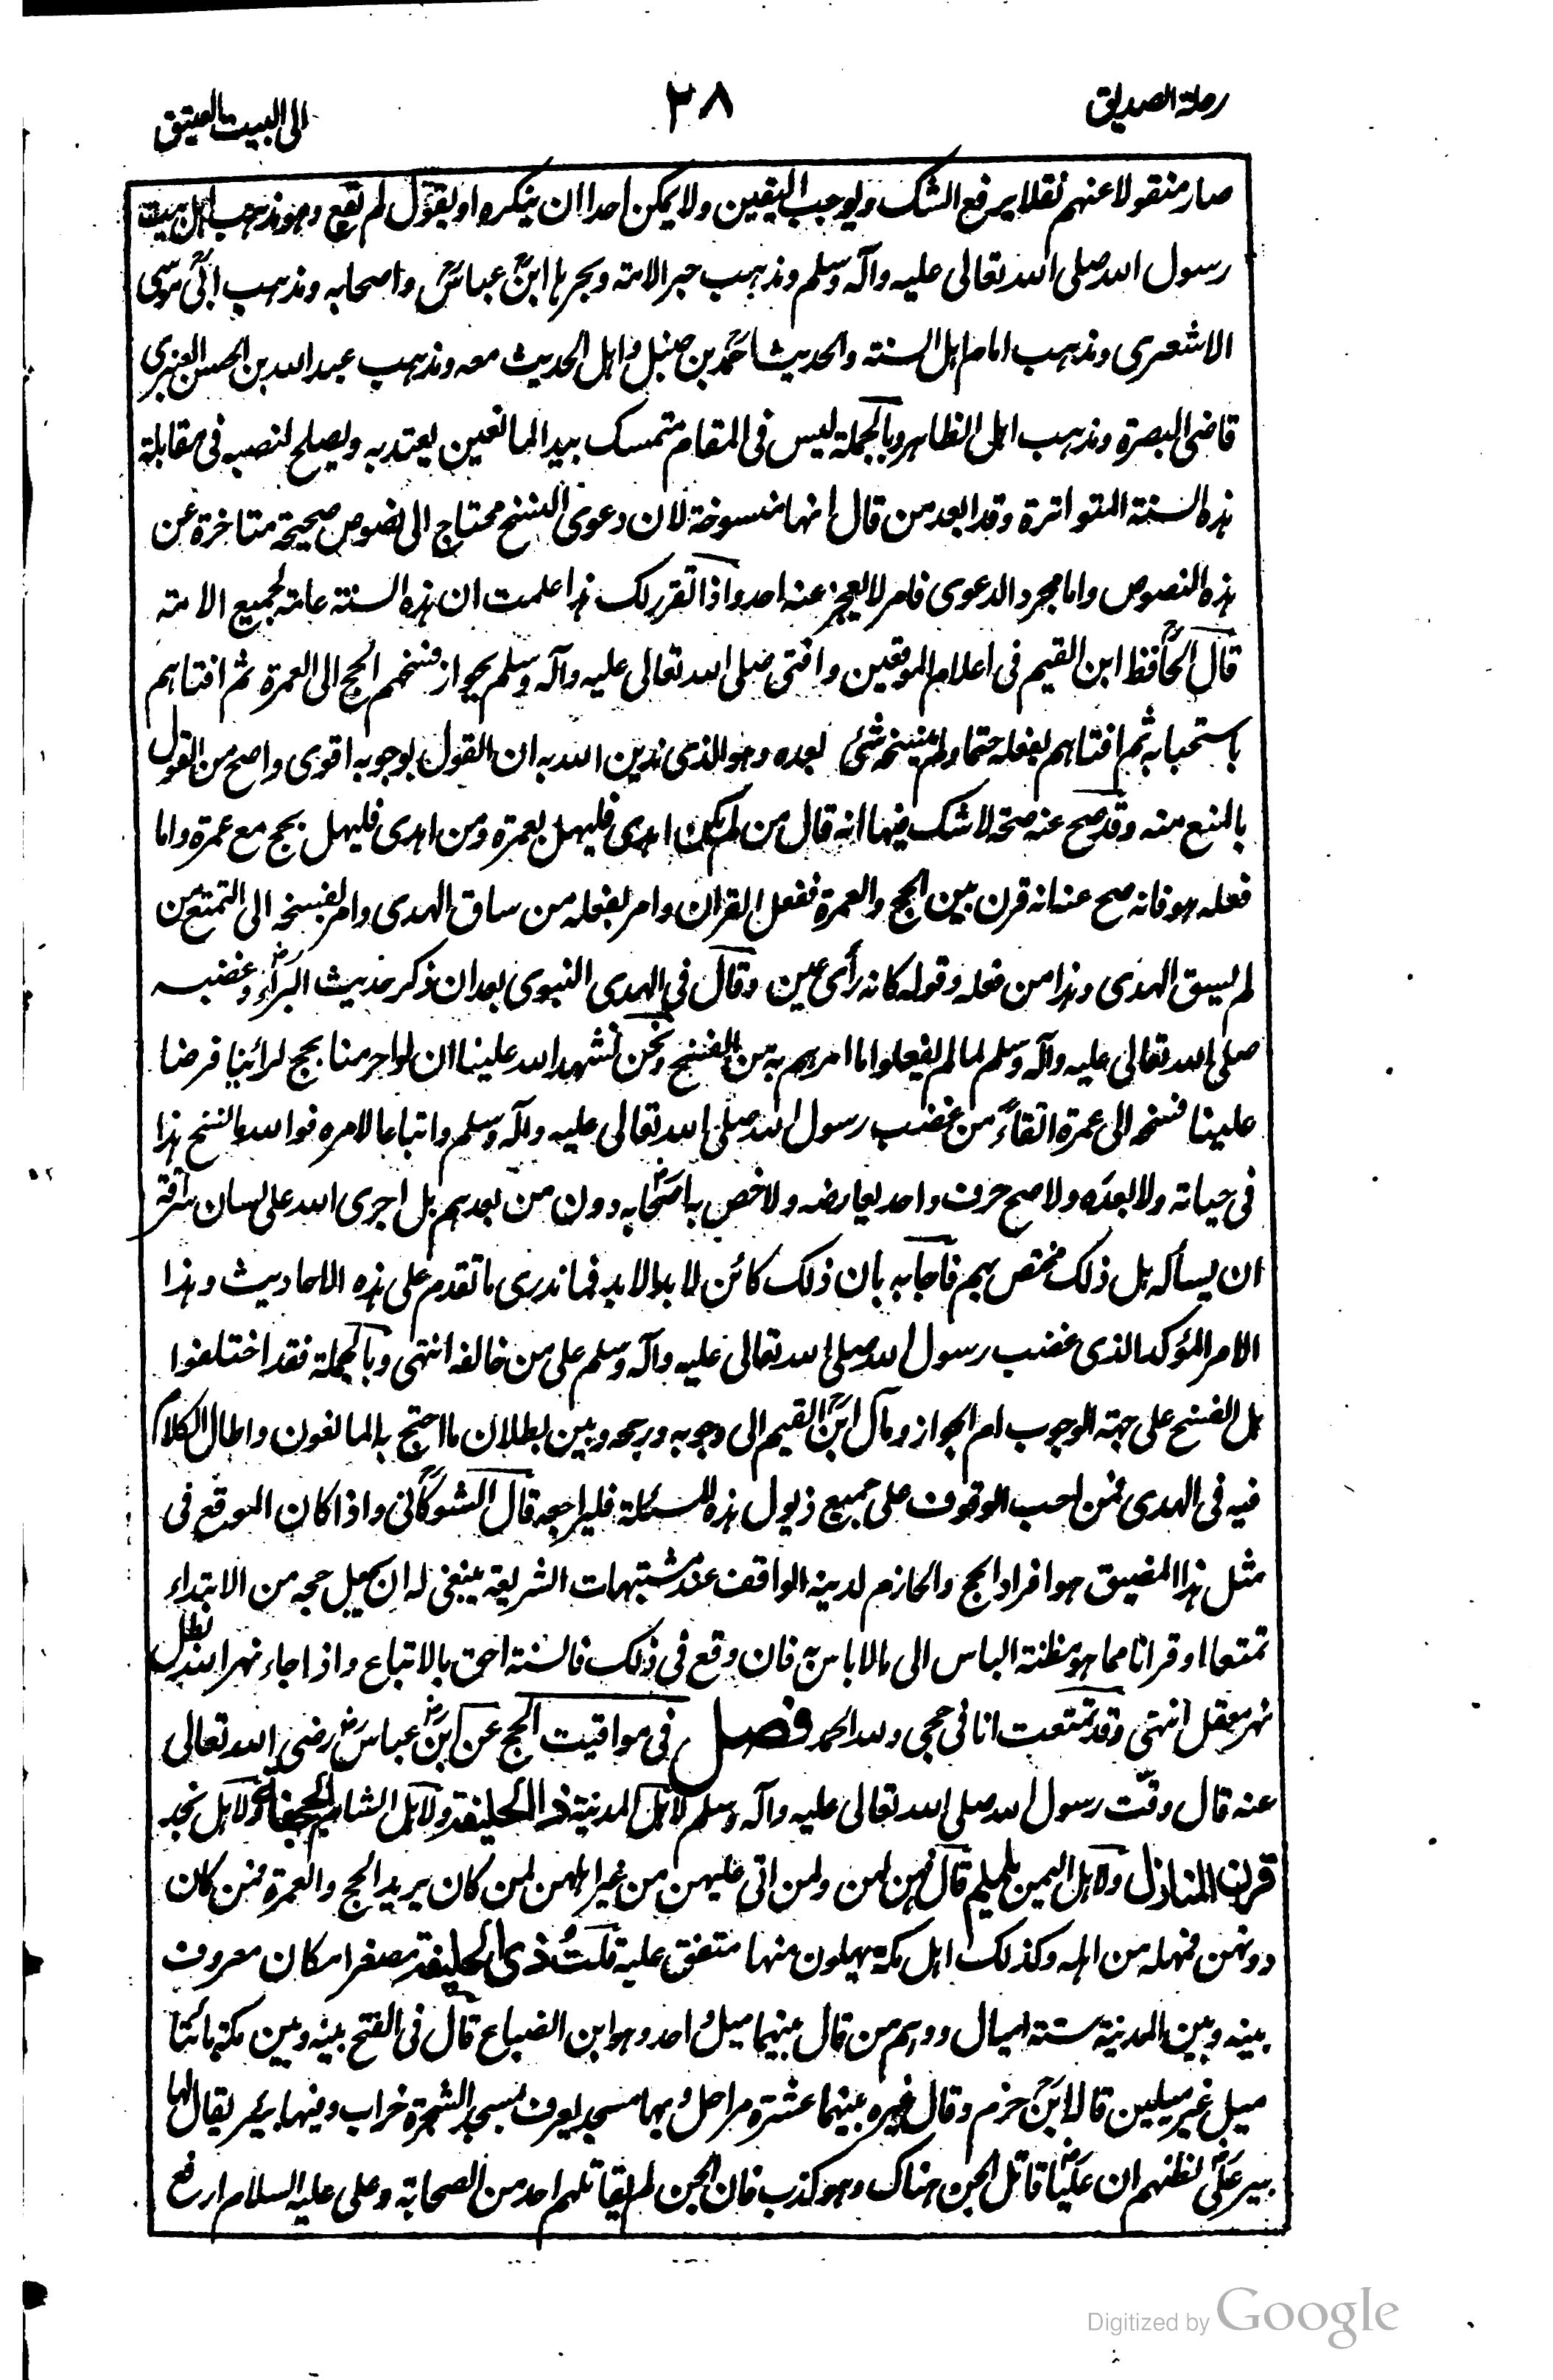 رحلة الصديق
٢٨
الى البيت العتيق
صار منقولا عنهم نقلا يرفع الشك ويوجب اليقين ولا يمكن احدا ان ينكره او يقول لم تقع وهو مذهب اهل بيت
رسول الله صلى الله تعالى عليه وآله وسلم ومذهب حبر الامة وبحرها ابن عباس واصحابه ومذهب ابى موسى
الاشعرى ومذهب امام اهل السنة والحديث احمد بن حنبل واهل الحديث معه ومذهب عبد الله بن الحسن العنبرى
قاضى البصرة ومذهب اهل الظاهر وبالجملة ليس فى المقام متمسك بيد المانعين يعتد به ويصلح لنصبه فى مقابلة
هذه السنة المتواترة وقد ابعد من قال انها منسوخة لان دعوى النسخ محتاج الى نصوص صحيحة متاخرة عن
هذه النصوص واما مجرد الدعوى فامر لا يعجز عنه احد واذا تقرر لك هذا علمت ان هذه السنة عامة لجميع الامة
قال الحافظ ابن القيم فى اعلام الموقعين وافتى صلى الله تعالى عليه وآله وسلم بجواز فسخهم الحج الى العمرة ثم افتاهم
باستحبابه ثم افتاهم بفعله حتما ولم ينسخه شئ بعده وهو الذى ندين الله به ان القول بوجوبه اقوى واصح من القول
بالمنع منه وقد صح عنه صحة لا شك فيها انه قال من لم يكن اهدى فليهل بعمرة ومن اهدى فليهل بحج مع عمرة واما
فعله هو فانه صح عنه انه قرن بين الحج والعمرة ففعل القران وامر بفعله من ساق الهدى وامر بفسخه الى التمتع من
لم يسق الهدى وهذا من فعله وقوله كانه رأى عين وقال فى الهدى النبوى بعد ان ذكر حديث البراء وغضبه
صلى الله تعالى عليه وآله وسلم لما لم يفعلوا ما امرهم به من الفسخ ونحن نشهد الله علينا ان لو احرمنا بحج لرائينا فرضا
علينا فسخه الى عمرة اتقاء من غضب رسول الله صلى الله تعالى عليه وآله وسلم واتباعا لامره فوالله ما نسخ هذا
فى حياته ولا بعده ولا صح حرف واحد يعارضه ولا خص به اصحابه دون من بعدهم بل اجرى الله على لسان سراقة
ان يسأله هل ذلك مختص بهم فاجابه بان ذلك كائن لابد الابد فما ندرى ما تقدم على هذه الاحاديث وهذا
الامر المؤكد الذى غضب رسول الله صلى الله تعالى عليه وآله وسلم على من خالفه انتهى وبالجملة فقد اختلفوا
هل الفسخ على جهة الوجوب ام الجواز ومال ابن القيم الى وجوبه ورجحه وبين بطلان ما احتج به المانعون واطال الكلام
فيه فى الهدى فمن احب الوقوف على جميع ذيول هذه المسئلة فليراجعه قال الشوكانى واذا كان الموقع فى
مثل هذا المضيق هو افراد الحج والحازم لدينه الواقف عند مشتبهات الشريعة ينبغى له ان يجعل حجه من الابتداء
تمتعا او قرانا مما هو مظنة الباس الى ما لا باس به فان وقع فى ذلك فالسنة احق بالاتباع واذا جاء نهر الله بطل
نهر معقل انتهى وقد تمتعت انا فى حجى ولله الحمد فصل فى مواقيت الحج عن ابن عباس رضى الله تعالى
عنه قال وقّت رسول الله صلى الله تعالى عليه وآله وسلم لاهل المدينة ذا الحليفة ولاهل الشام الجحفة ولاهل نجد
قرن المنازل ولاهل اليمن يلملم قال فهن لهن ولمن اتى عليهن من غير اهلهن لمن كان يريد الحج والعمرة فمن كان
دونهن فمهله من اهله وكذلك اهل مكة يهلون منها متفق عليه قلت ذى الحليفة مصغرا مكان معروف
بينه وبين المدينة ستة اميال ووهم من قال بينهما ميل واحد وهو ابن الصباغ قال فى الفتح بينه وبين مكة مائتا
ميل غير ميلين قاله ابن حزم وقال غيره بينهما عشرة مراحل وبها مسجد يعرف بمسجد الشجرة خراب وفيها بئر يقال لها
بير على لظنهم ان عليا قاتل الجن هناك وهو كذب فان الجن لم يقاتلهم احد من الصحابة وعلى عليه السلام ارفع
Digitized by Google